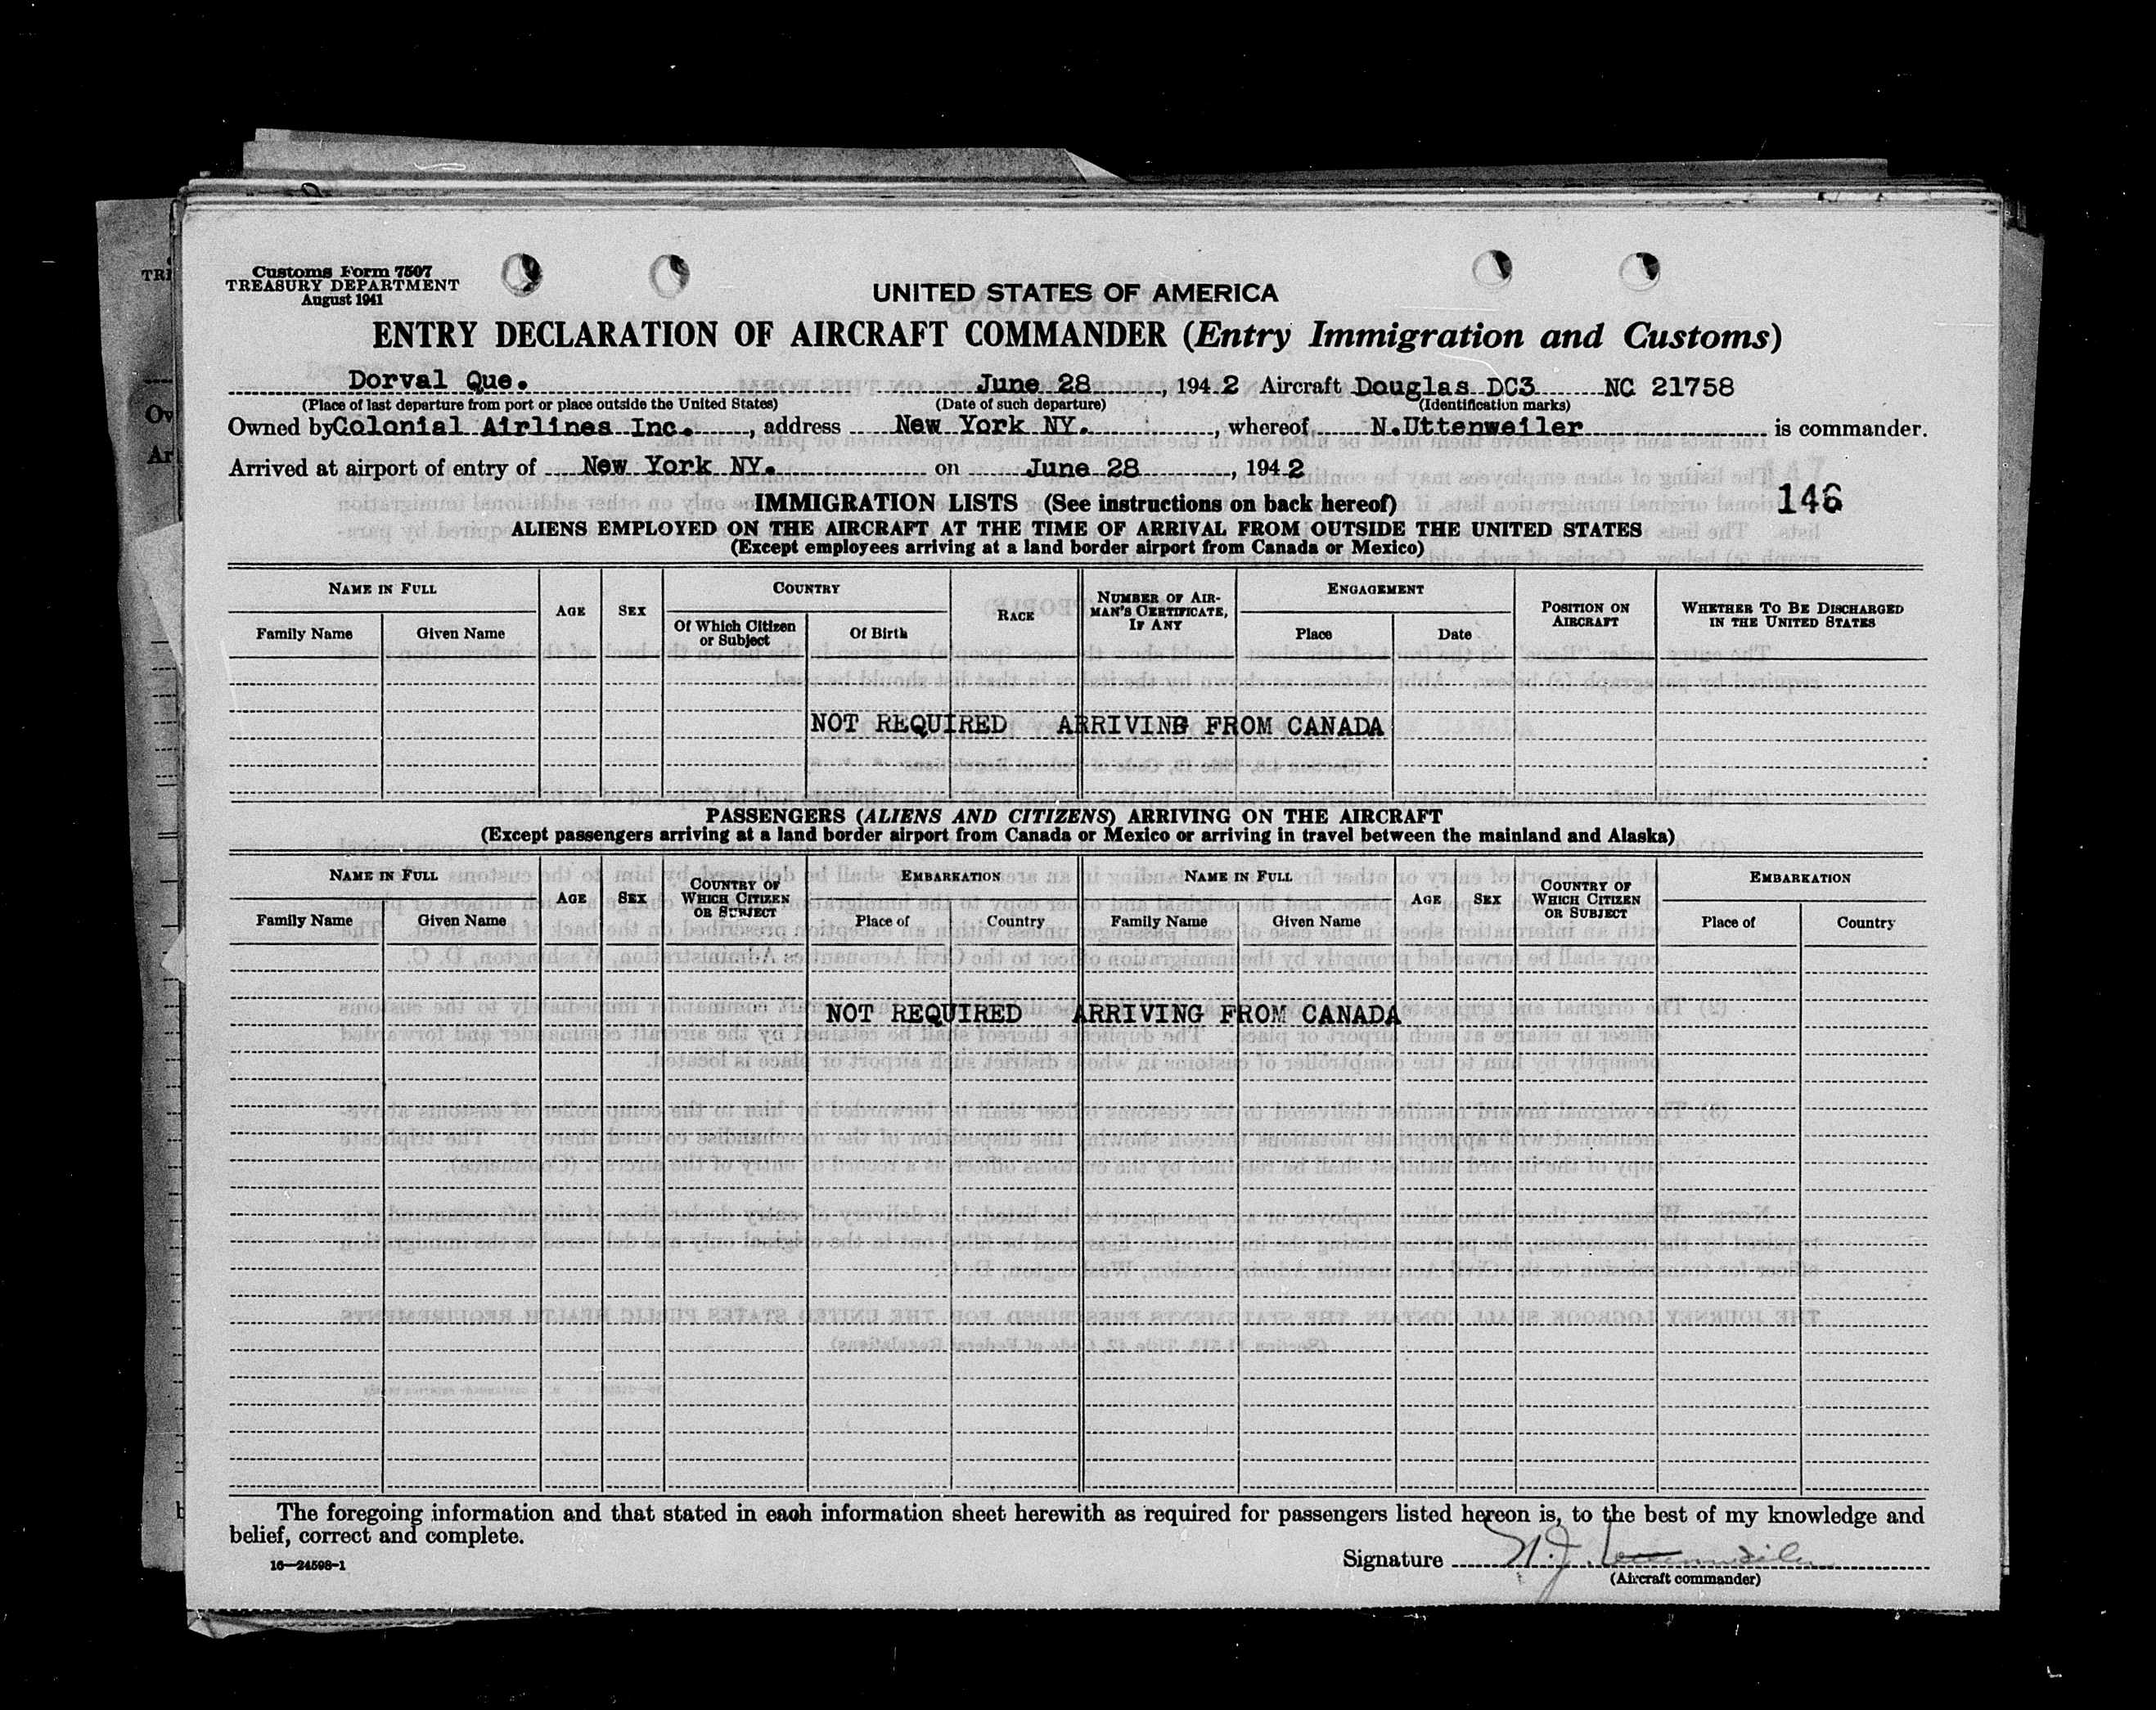 Customs Form 7507
TREASURY DEPARTMENT
August 1941
UNITED STATES OF AMERICA
ENTRY DECLARATION OF AIRCRAFT COMMANDER (Entry Immigration and Customs)
Dorval Que. June 28, 1942 Aircraft Douglas DC3 NC 21758
(Place of last departure from port or place outside the United States) (Date of such departure) (Identification marks)
Owned by Colonial Airlines Inc., address New York NY., whereof N.Uttenweiler is commander.
Arrived at airport of entry of New York NY. on June 28, 1942
IMMIGRATION LISTS (See instructions on back hereof) 146
ALIENS EMPLOYED ON THE AIRCRAFT AT THE TIME OF ARRIVAL FROM OUTSIDE THE UNITED STATES
(Except employees arriving at a land border airport from Canada or Mexico)
NAME IN FULL AGE SEX COUNTRY RACE NUMBER OF AIR-MAN'S CERTIFICATE, IF ANY ENGAGEMENT POSITION ON AIRCRAFT WHETHER TO BE DISCHARGED IN THE UNITED STATES
Family Name Given Name Of Which Citizen or Subject Of Birth Place Date
NOT REQUIRED ARRIVING FROM CANADA
PASSENGERS (ALIENS AND CITIZENS) ARRIVING ON THE AIRCRAFT
(Except passengers arriving at a land border airport from Canada or Mexico or arriving in travel between the mainland and Alaska)
NAME IN FULL AGE SEX COUNTRY OF WHICH CITIZEN OR SUBJECT EMBARKATION NAME IN FULL AGE SEX COUNTRY OF WHICH CITIZEN OR SUBJECT EMBARKATION
Family Name Given Name Place of Country Family Name Given Name Place of Country
NOT REQUIRED ARRIVING FROM CANADA
The foregoing information and that stated in each information sheet herewith as required for passengers listed hereon is, to the best of my knowledge and
belief, correct and complete.
16—24598-1
Signature N.J. Uttenweiler
(Aircraft commander)